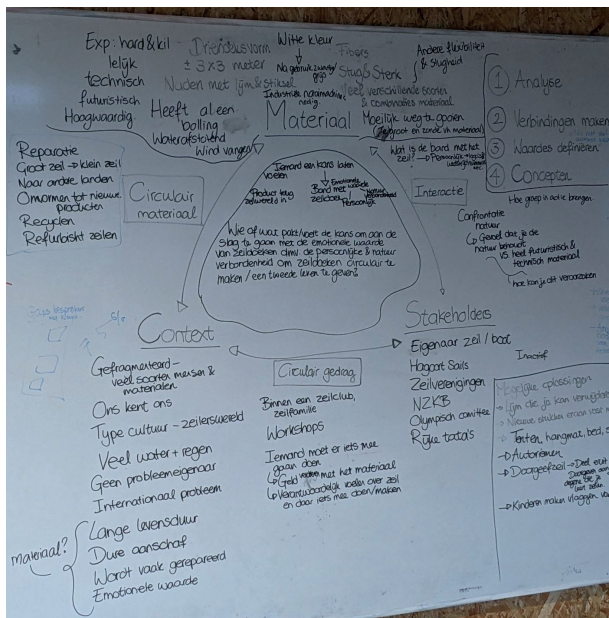 Exp: hard & kil
lelijk
technisch
futuristisch
Hoogwaardig.
Driehoeksvorm
± 3x3 meter
Naden met lijm & stiksel
Heeft al een
bolling
Waterafstotend
Wind vangen
Witte kleur
Na gebruik zwart/
grijs
Industriële naaimachine
nodig.
Materiaal
Fibers
Stug & Sterk
Andere flexibiliteit
& stugheid
Veel verschillende soorten
& combinaties materiaal
Moeilijk weg te gooien
(te groot en zonde vh materiaal)
Wat is de band met het
zeil? → Persoonlijk
① Analyse
② Verbindingen maken
③ Waardes definiëren
④ Concepten
Reparatie
Groot zeil → klein zeil
Naar andere landen
Omvormen tot nieuwe
producten
Recyclen
Refurbisht zeilen
Circulair
materiaal
Iemand een kans laten
voelen
Product terug
zeilwereld in
Emotionele
Band met waarde
zeildoek
Persoonlijk
Natuur
verbondenheid
Interactie
Wie of wat pakt/heeft de kans om aan de
slag te gaan met de emotionele waarde
van zeildoeken dmv de persoonlijke & natuur
verbondenheid om zeildoeken circulair te
maken / een tweede leven te geven?
Hoe groep in actie brengen
Confrontatie
natuur
↳ Gevoel dat je de
natuur behoudt
VS heel futuristisch &
technisch materiaal
hoe kan je dit veroorzaken
Context
Gefragmenteerd –
veel soorten mensen &
materialen
Ons kent ons
Type cultuur – zeilerswereld
Veel water + regen
Geen probleemeigenaar
Internationaal probleem
materiaal?
Lange levensduur
Dure aanschaf
Wordt vaak gerepareerd
Emotionele waarde
Circulair gedrag
Binnen een zeilclub,
zeilfamilie
Workshops
Iemand moet er iets mee
gaan doen
↳ Geld met het materiaal
↳ Verantwoordelijk voelen over zeil
en daar iets mee doen/maken
Stakeholders
Eigenaar zeil / boot
Hagoort Sails
Zeilverenigingen
NZKB
Olympisch comittee
Rijke tata's
Inactief
Mogelijke oplossingen
→ Lijm die je kan verwijderen
→ Nieuwe stukken eraan vast
→ Tenten, hangmat, bed,
→ Autoriemen
→ Doorgeefzeil → Deel eruit
Doorgeven aan
degene die je
leert zeilen
→ Kinderen maken vlaggen